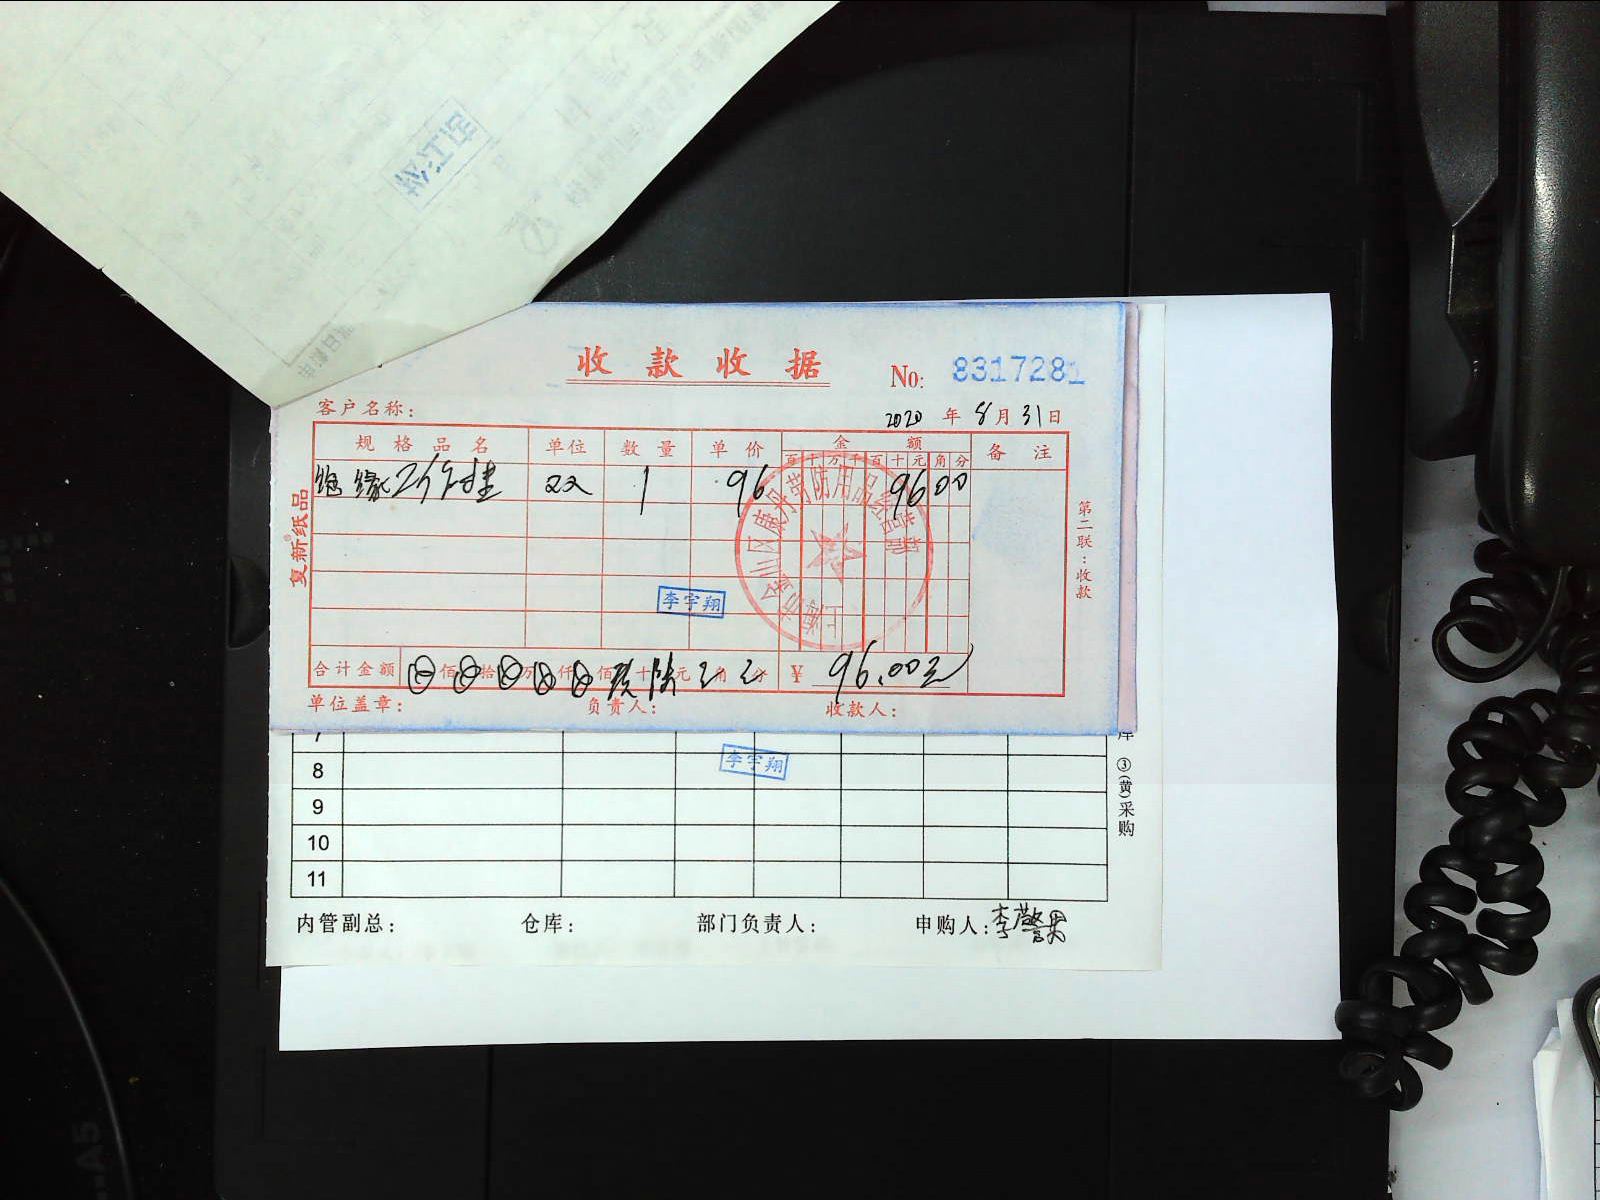 收款收据
No: 8317281
客户名称：
2020年8月31日
规格品名 单位 数量 单价 金额 备注
百十万千百十元角分
绝缘 双 1 96 9600
上海市金山区康丹劳防用品经营部
李宇翔
合计金额 佰 拾 万 仟 佰 玖十陆元 角 分 ¥ 96.00元
单位盖章： 负责人： 收款人：
复新纸品
第二联：收款
7
李宇翔
8
9
10
11
库 ③(黄)采购
内管副总： 仓库： 部门负责人： 申购人：李
A5